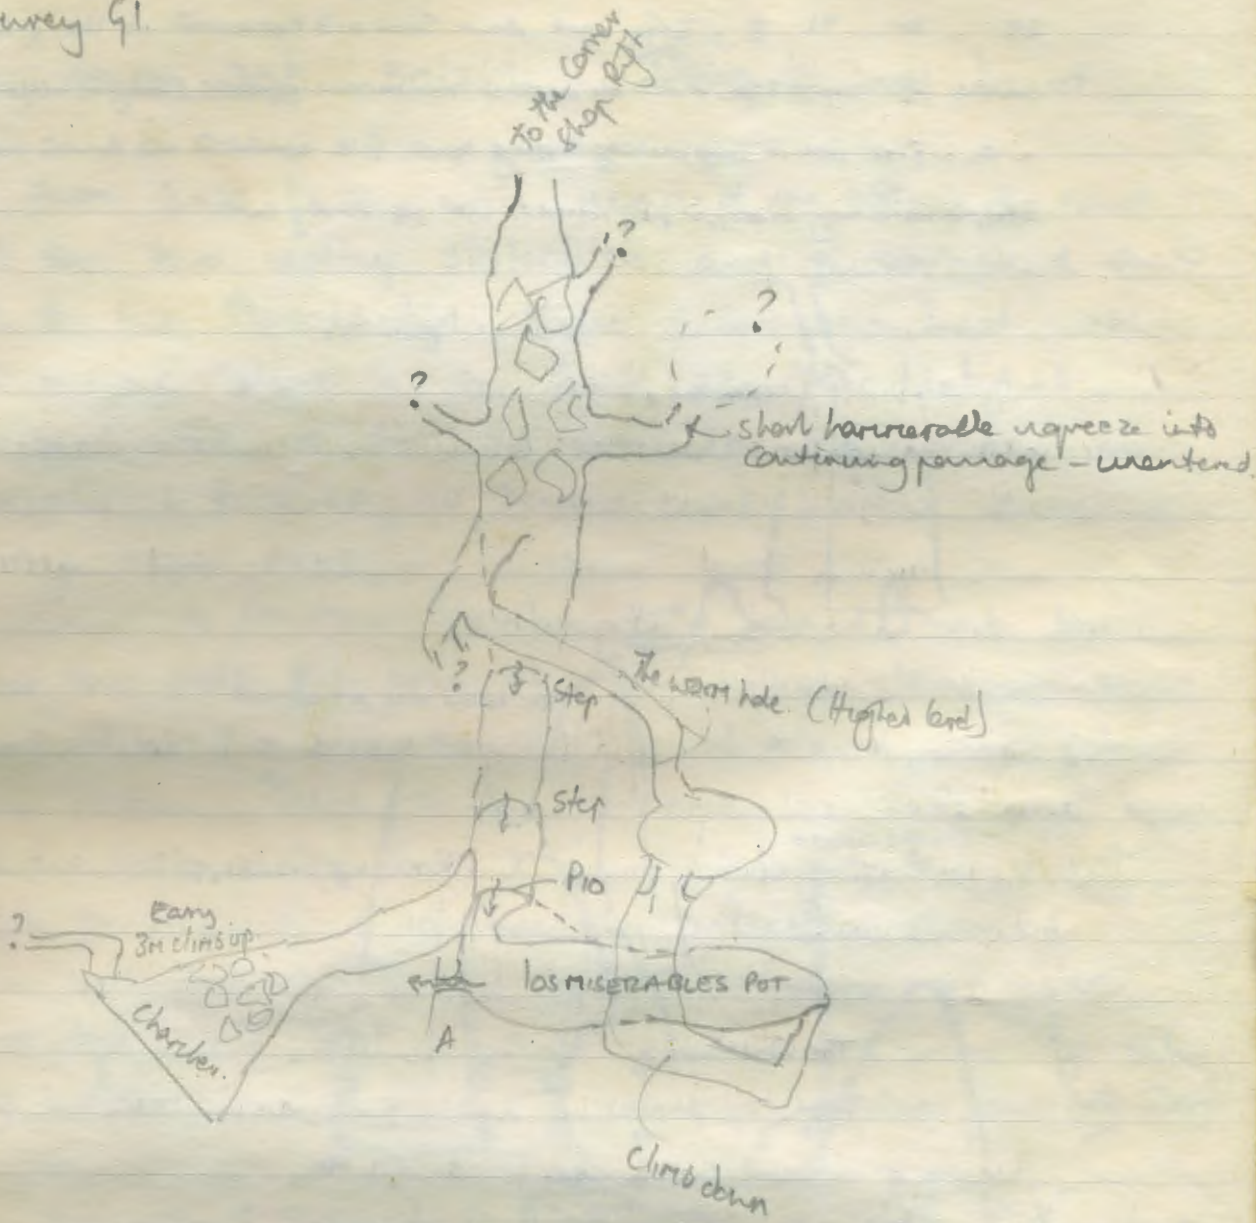 urvey G1.
To the Corner
Shop Rift
?
?
?
short hammerable squeeze into
continuing passage - unentered.
?
Step
The worm hole. (Higher level)
Step
P10
Easy
3m climb up
?
LOS MISERABLES POT
Chamber.
A
Climb down